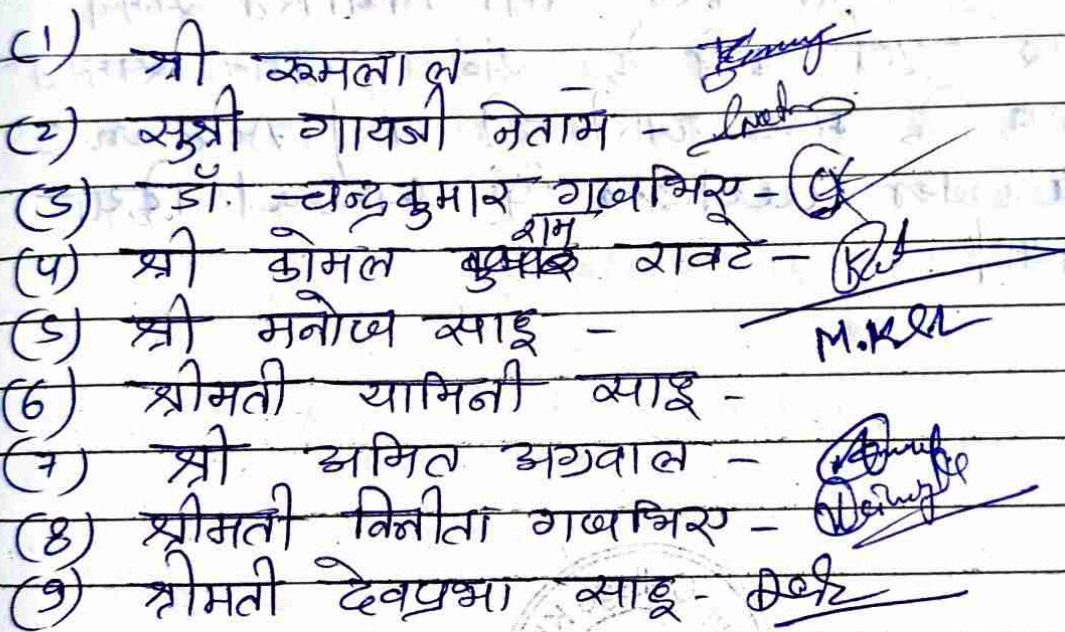 (1) श्री रूमलाल -
(2) सुश्री गायत्री नेताम -
(3) डॉ. चन्द्रकुमार गजभिए -
(4) श्री कोमल राम रावटे -
(5) श्री मनोज साहू -
(6) श्रीमती यामिनी साहू -
(7) श्री अमित अग्रवाल -
(8) श्रीमती विनीता गजभिए -
(9) श्रीमती देवप्रभा साहू -